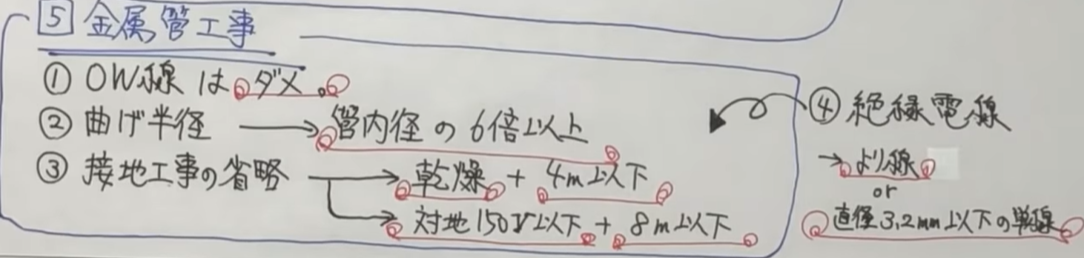 5 金属管工事
① OW線はダメ。
② 曲げ半径 → 管内径の6倍以上
③ 接地工事の省略 → 乾燥 + 4m以下
→ 対地150V以下 + 8m以下
④ 絶縁電線
→ より線
or
直径3.2mm以下の単線